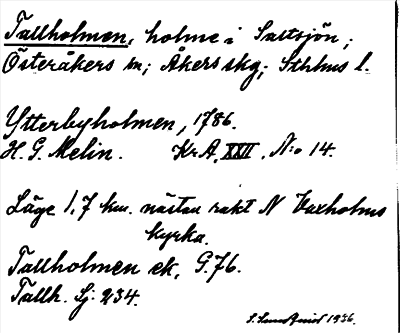 Tallholmen, holme i Saltsjön;
Österåkers sn; Åkers skg; Sthlms l.
Ytterbyholmen, 1786.
H. G. Melin. Kr A, XXII, N:o 14.
Läge 1,7 km. nästan rakt N Vaxholms
kyrka.
Tallholmen ek, G.76.
Tallh. Sj: 234.
1936.